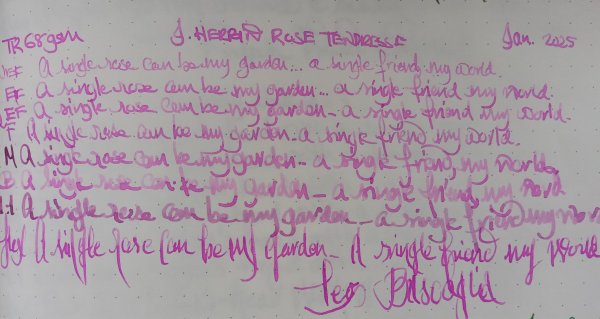 TR68gsm J. HERBIN ROSE TENDRESSE Jan. 2025
EF A single rose can be my garden... a single friend, my world.
EF A single rose can be my garden... a single friend, my world.
EF A single rose can be my garden - a single friend my world.
F A single rose can be my garden - a single friend, my world.
M A single rose can be my garden - a single friend, my world.
B A single rose can be my garden - a single friend, my word
1.1 A single rose can be my garden - a single friend my wor
A single rose can be my garden - A single friend my world
Leo Buscaglia